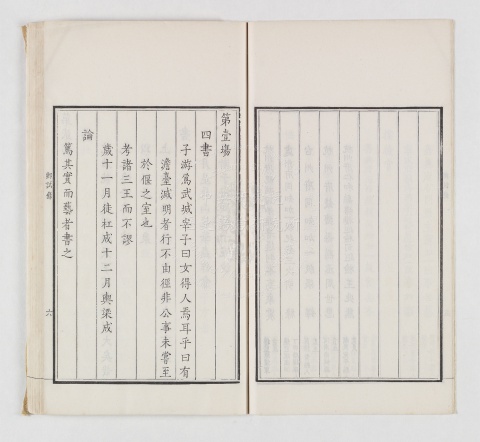 第壹場
四書
子游爲武城宰子曰女得人焉耳乎曰有
澹臺滅明者行不由徑非公事未嘗至
於偃之室也
考諸三王而不謬
歲十一月徒杠成十二月輿梁成
論
篤其實而藝者書之
鄉試錄
六